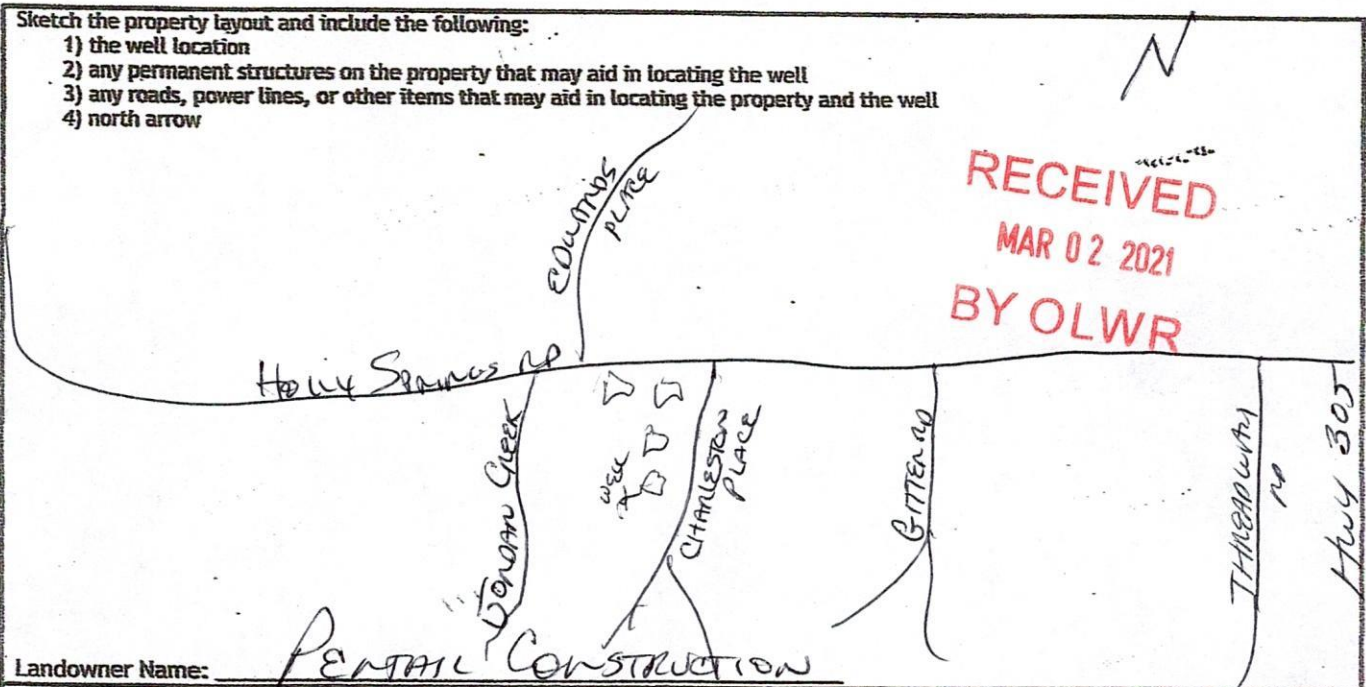 Sketch the property layout and include the following:
1) the well location
2) any permanent structures on the property that may aid in locating the well
3) any roads, power lines, or other items that may aid in locating the property and the well
4) north arrow
N
RECEIVED
MAR 02 2021
BY OLWR
EDWARDS
PLACE
HOLLY SPRINGS RD
JORDAN CREEK
WELL
CHARLESTON
PLACE
RD
RD
HWY 305
Landowner Name: PENTAIL CONSTRUCTION